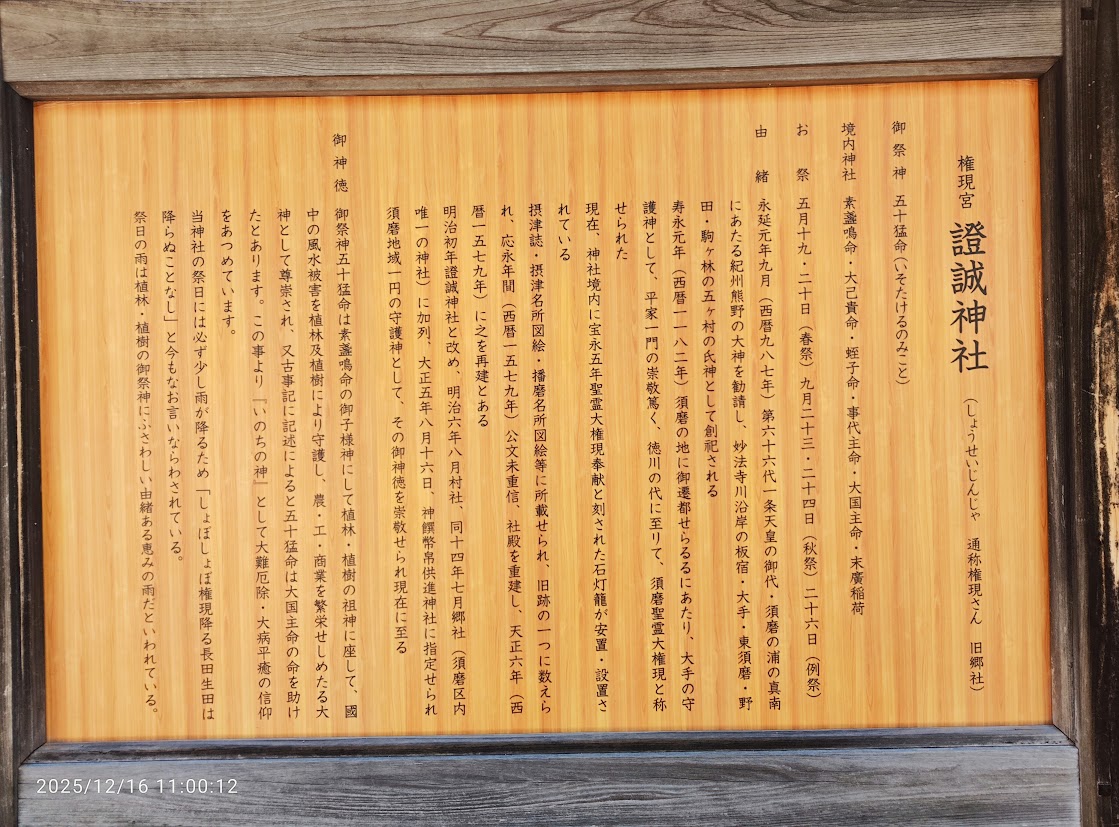 権現宮 證誠神社 (しょうせいじんじゃ 通称権現さん 旧郷社)
御祭神 五十猛命(いそたけるのみこと)
境内神社 素盞鳴命・大己貴命・蛭子命・事代主命・大国主命・末廣稲荷
お祭 五月十九・二十日(春祭)九月二十三・二十四日(秋祭)二十六日(例祭)
由緒 永延元年九月(西暦九八七年)第六十六代一条天皇の御代・須磨の浦の真南
にあたる紀州熊野の大神を勧請し、妙法寺川沿岸の板宿・大手・東須磨・野
田・駒ヶ林の五ヶ村の氏神として創祀される
寿永元年(西暦一一八二年)須磨の地に御遷都せらるるにあたり、大手の守
護神として、平家一門の崇敬篤く、徳川の代に至りて、須磨聖霊大権現と称
せられた
現在、神社境内に宝永五年聖霊大権現奉献と刻された石灯籠が安置・設置さ
れている
摂津誌・摂津名所図絵・播磨名所図絵等に所載せられ、旧跡の一つに数えら
れ、応永年間(西暦一五七九年)公文末重信、社殿を重建し、天正六年(西
暦一五七九年)に之を再建とある
明治初年證誠神社と改め、明治六年八月村社、同十四年七月郷社(須磨区内
唯一の神社)に加列、大正五年八月十六日、神饌幣帛供進神社に指定せられ
須磨地域一円の守護神として、その御神徳を崇敬せられ現在に至る
御神徳 御祭神五十猛命は素盞鳴命の御子様神にして植林・植樹の祖神に座して、國
中の風水被害を植林及植樹により守護し、農・工・商業を繁栄せしめたる大
神として尊崇され、又古事記に記述によると五十猛命は大国主命の命を助け
たとあります。この事より『いのちの神』として大難厄除・大病平癒の信仰
をあつめています。
当神社の祭日には必ず少し雨が降るため「しょぼしょぼ権現降る長田生田は
降らぬことなし」と今もなお言いならわされている。
祭日の雨は植林・植樹の御祭神にふさわしい由緒ある恵みの雨だといわれている。
2025/12/16 11:00:12